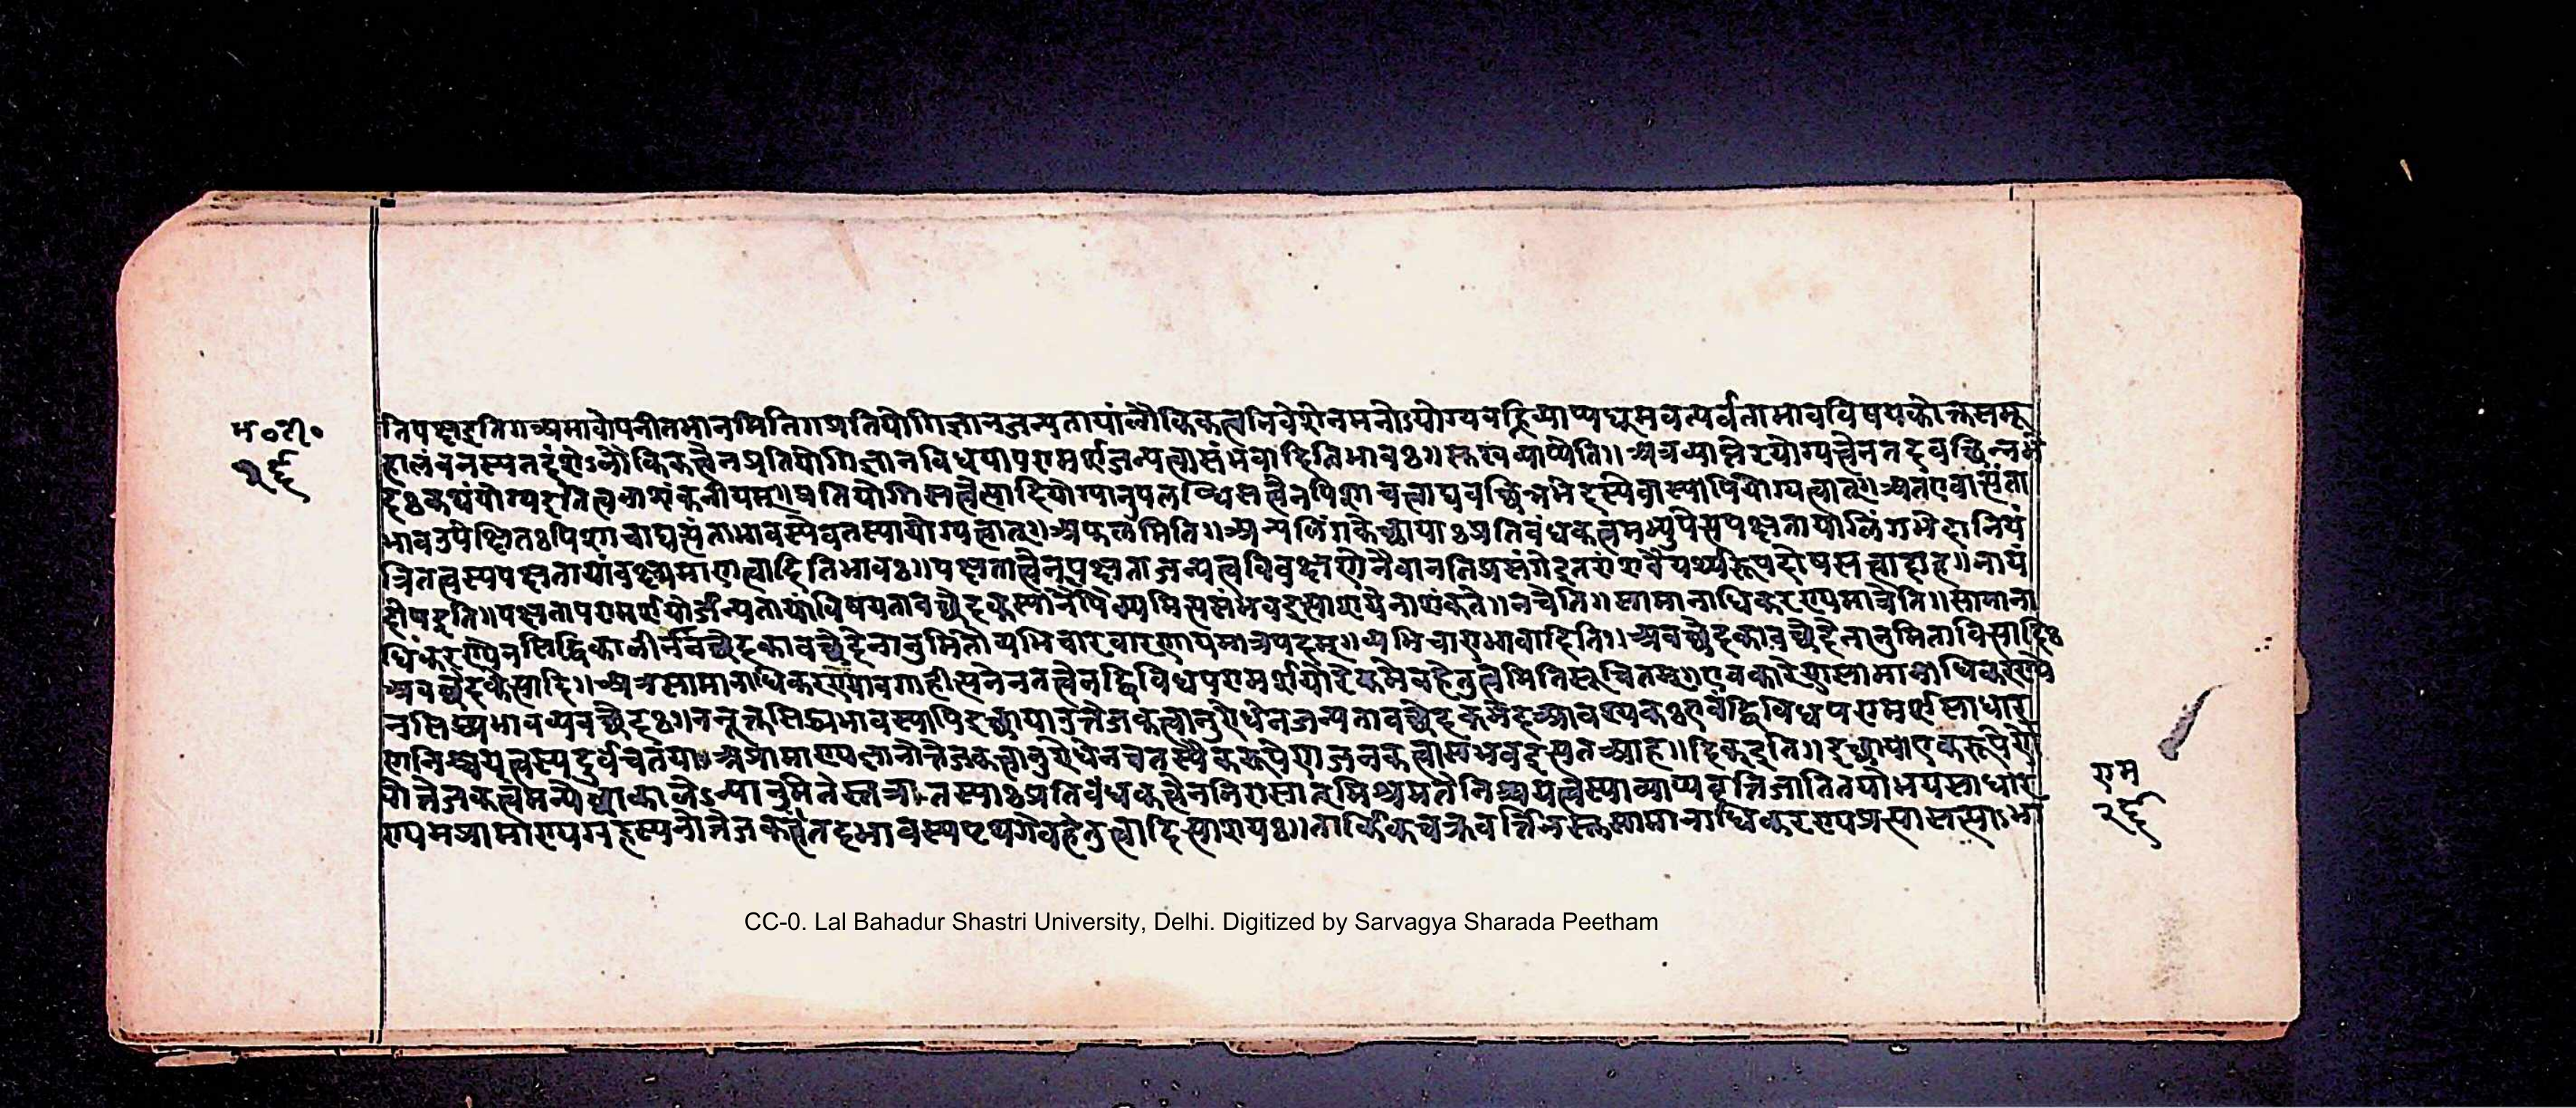 म॰टी॰
२६
तिपक्षइति॥अभावोपनीतभानमिति॥प्रतियोगिज्ञानजन्यतायांलौकिकत्वनिवेशेनमनोऽयोग्यवह्निव्याप्यधूमवत्पर्वताभावविषयकोक्तसमू
हालंबनस्यतदंशेऽलौकिकत्वेनप्रतियोगिज्ञानविधयापरामर्शजन्यत्वासंभवादितिभावः॥व्याप्येति॥अत्रव्याप्तेरयोग्यत्वेनतदवच्छिन्नभे
दःकथंयोग्यइतित्वनाशंकनीयम्॥प्रतियोगिसत्वेत्यादियोग्यानुपलब्धिसत्वेनपिशाचत्वाद्यवच्छिन्नभेदस्येवास्यापियोग्यत्वात्॥अतएवात्संता
भावउपेक्षितःपिशाचाद्यत्संताभावस्येवतस्यायोग्यत्वात्॥फलमिति॥अन्यलिंगकेच्छायाःप्रतिबंधकत्वमभ्युपेत्सपक्षतायांलिंगभेदानियं
त्रितत्वस्यपक्षतायांवक्ष्यमाणत्वादितिभावः॥पक्षतात्वेनपक्षताजन्यत्वविवक्षणेनैवानतिप्रसंगे
दोषइति॥पक्षतापरामर्शयोर्जन्यतायांविषयतावच्छेदकस्यानैषित्याशंकते॥नचेति॥सामानाधिकरण्यमात्रेति॥सामाना
धिकरण्येनसिद्धिकालीनेनवच्छेदकावच्छेदेनानुमितौव्यभिचारवारणायमात्रपदम्॥व्यभिचाराभावादिति॥अवच्छेदकावच्छेदेनानुमितावित्सादिः
अवच्छेदकेत्सादि॥अत्रसामानाधिकरण्यावगाहीत्सनेनतत्वेनद्विविधपरामर्शयोरेकमेवहेतुत्वमितिसूचितम्॥एवकारेणसामानाधिकरण्ये
नसिध्यभावव्यवच्छेदः॥ननूक्तसिध्यभावस्यापिइच्छायाउत्तेजकत्वानुरोधेनजन्यतावच्छेदकभेदआवश्यकःएवंद्विविधपरामर्शसाधार
णनिश्चयत्वस्यदुर्वचतया॥अप्रामाण्यज्ञानोत्तेजकत्वानुरोधेनचतस्यैकरूपेणजनकत्वासंभवइत्सतआह॥दिकइति॥इच्छायाएकरूपेणो
योत्तेजकत्वमन्येच्छाकालेऽन्यानुमितेस्तत्रातस्याःप्रतिबंधकत्वेननिरासात्मिश्रमतेनिश्चयत्वस्याव्याप्यवृत्तिजातितयोभयसाधार
ण्यमप्रामाण्यग्रहस्यनोत्तेजकत्वंतदभावस्यपृथगेवहेतुत्वादित्याशयः॥तार्किकचक्रवर्त्तिनस्तुसामानाधिकरण्य
राम
२६
CC-0. Lal Bahadur Shastri University, Delhi. Digitized by Sarvagya Sharada Peetham